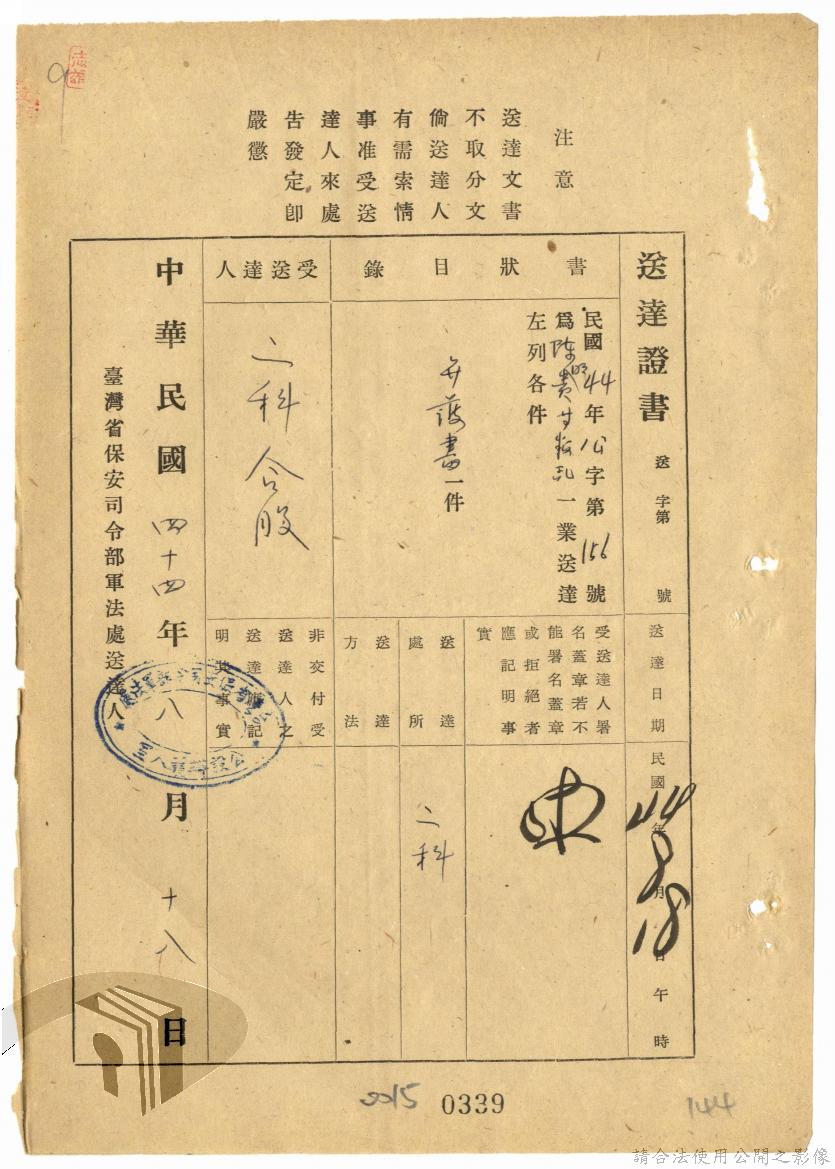 注意
送達文書
不取分文
倘送達人
有需索情
事准受送
達人來處
告發定即
嚴懲
送達證書
送 字第 號
送達日期
民國 44 年 8 月 18 日 午 時
書狀目錄
民國 44 年 公 字第 156 號
為陳 貴 等叛乱一業送達
左列各件
弁護書一件
受送達人署
名蓋章若不
能署名蓋章
或拒絕者
應記明事
實
送達處所
二科
送達方法
受送達人
二科合股
非交付受
送達人之
送達應記
明其事實
中華民國 四十四 年 八 月 十八 日
臺灣省保安司令部軍法處送達人
0015
0339
144
請合法使用公開之影像